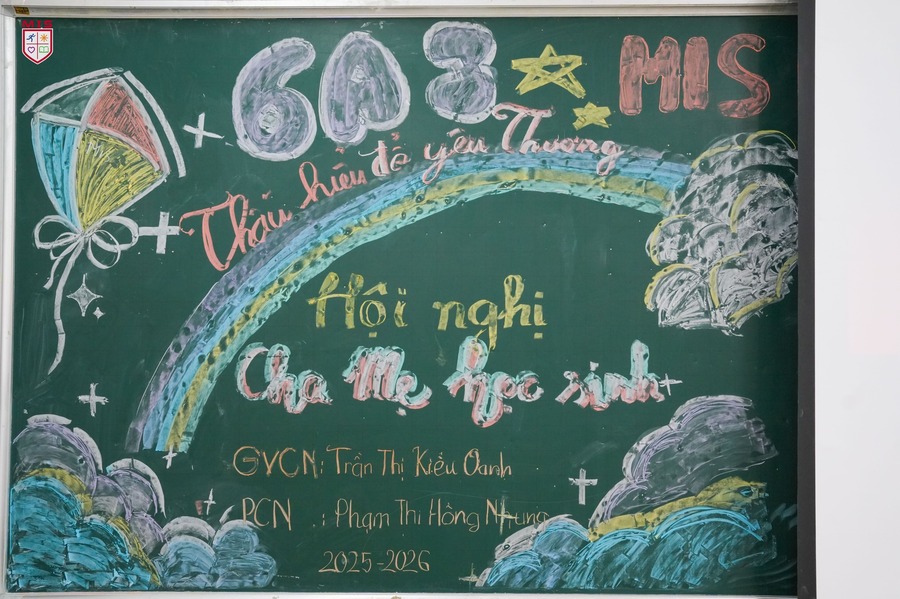 MIS
6A3 MIS
Thấu hiểu để yêu Thương
Hội nghị
Cha Mẹ học sinh
GVCN: Trần Thị Kiều Oanh
PCN .: Phạm Thị Hồng Nhung
2025-2026